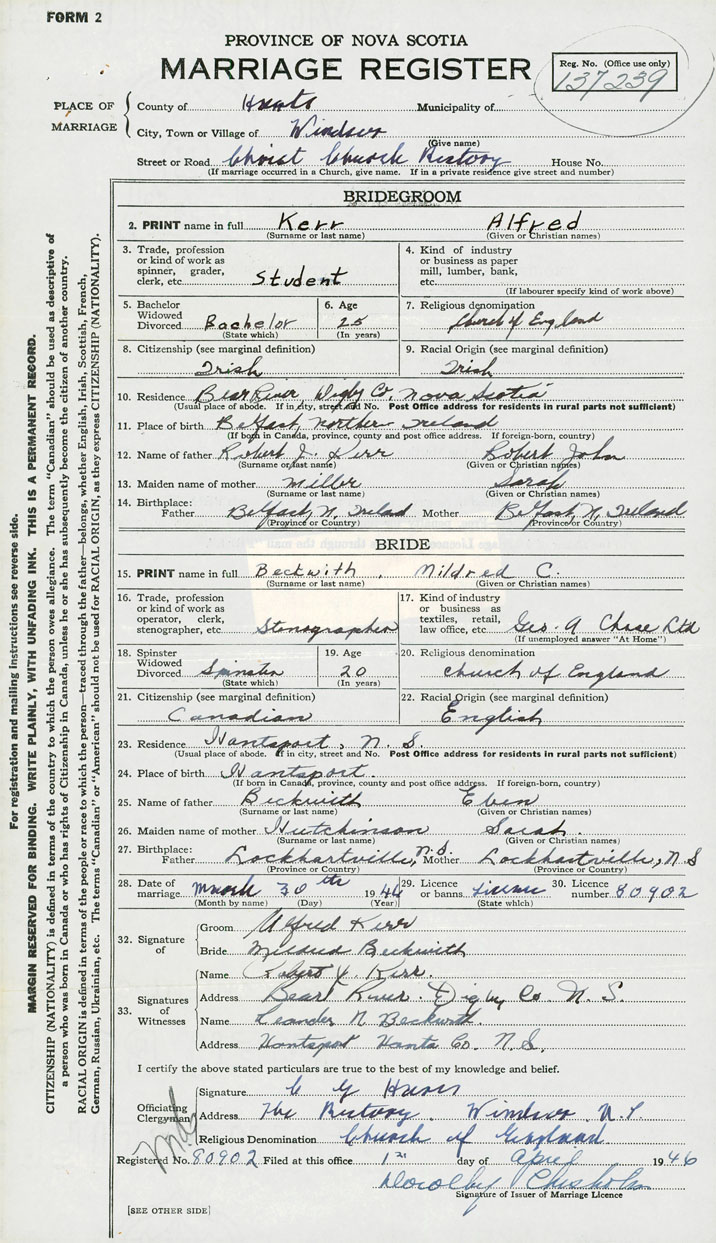 FORM 2
PROVINCE OF NOVA SCOTIA
MARRIAGE REGISTER
Reg. No. (Office use only)
137239
PLACE OF MARRIAGE
County of Hants Municipality of
City, Town or Village of Windsor
(Give name)
Street or Road Christ Church Rectory House No.
(If marriage occurred in a Church, give name. If in a private residence give street and number)
BRIDEGROOM
2. PRINT name in full Kerr Alfred
(Surname or last name) (Given or Christian names)
3. Trade, profession or kind of work as spinner, grader, clerk, etc. Student
4. Kind of industry or business as paper mill, lumber, bank, etc.
(If labourer specify kind of work above)
5. Bachelor Widowed Divorced Bachelor
(State which)
6. Age 25
(In years)
7. Religious denomination Church of England
8. Citizenship (see marginal definition) Irish
9. Racial Origin (see marginal definition) Irish
10. Residence Bear River, Digby Co. Nova Scotia
(Usual place of abode. If in city, street and No. Post Office address for residents in rural parts not sufficient)
11. Place of birth Belfast, Northern Ireland
(If born in Canada, province, county and post office address. If foreign-born, country)
12. Name of father Robert J. Kerr Robert John
(Surname or last name) (Given or Christian names)
13. Maiden name of mother Miller Sarah
(Surname or last name) (Given or Christian names)
14. Birthplace: Father Belfast, N. Ireland Mother Belfast, N. Ireland
(Province or Country) (Province or Country)
BRIDE
15. PRINT name in full Beckwith, Mildred C.
(Surname or last name) (Given or Christian names)
16. Trade, profession or kind of work as operator, clerk, stenographer, etc. Stenographer
17. Kind of industry or business as textiles, retail, law office, etc. Geo. A Chase Ltd
(If unemployed answer "At Home")
18. Spinster Widowed Divorced Spinster
(State which)
19. Age 20
(In years)
20. Religious denomination Church of England
21. Citizenship (see marginal definition) Canadian
22. Racial Origin (see marginal definition) English
23. Residence Hantsport, N.S.
(Usual place of abode. If in city, street and No. Post Office address for residents in rural parts not sufficient)
24. Place of birth Hantsport.
(If born in Canada, province, county and post office address. If foreign-born, country)
25. Name of father Beckwith Eben
(Surname or last name) (Given or Christian names)
26. Maiden name of mother Hutchinson Sarah.
(Surname or last name) (Given or Christian names)
27. Birthplace: Father Lockhartville, N.S. Mother Lockhartville, N S
(Province or Country) (Province or Country)
28. Date of marriage March 30th 1946
(Month by name) (Day) (Year)
29. Licence or banns License
(State which)
30. Licence number 80902
32. Signature of
Groom Alfred Kerr
Bride Mildred Beckwith
33. Signatures of Witnesses
Name Robert J. Kerr.
Address Bear River. Digby Co. N. S.
Name Leander N Beckwith.
Address Hantsport Hants Co. N. S.
I certify the above stated particulars are true to the best of my knowledge and belief.
Officiating Clergyman
Signature C G
Address The Rectory. Windsor N.S
Religious Denomination Church of England.
Registered No. 80902 Filed at this office 1st day of April 1946
Dorothy Chisholm
Signature of Issuer of Marriage Licence
[SEE OTHER SIDE]
For registration and mailing instructions see reverse side.
MARGIN RESERVED FOR BINDING. WRITE PLAINLY, WITH UNFADING INK. THIS IS A PERMANENT RECORD.
CITIZENSHIP (NATIONALITY) is defined in terms of the country to which the person owes allegiance. The term "Canadian" should be used as descriptive of
a person who was born in Canada or who has rights of Citizenship in Canada, unless he or she has subsequently become the citizen of another country.
RACIAL ORIGIN is defined in terms of the people or race to which the person—traced through the father—belongs, whether English, Irish, Scottish, French,
German, Russian, Ukrainian, etc. The terms "Canadian" or "American" should not be used for RACIAL ORIGIN, as they express CITIZENSHIP (NATIONALITY).